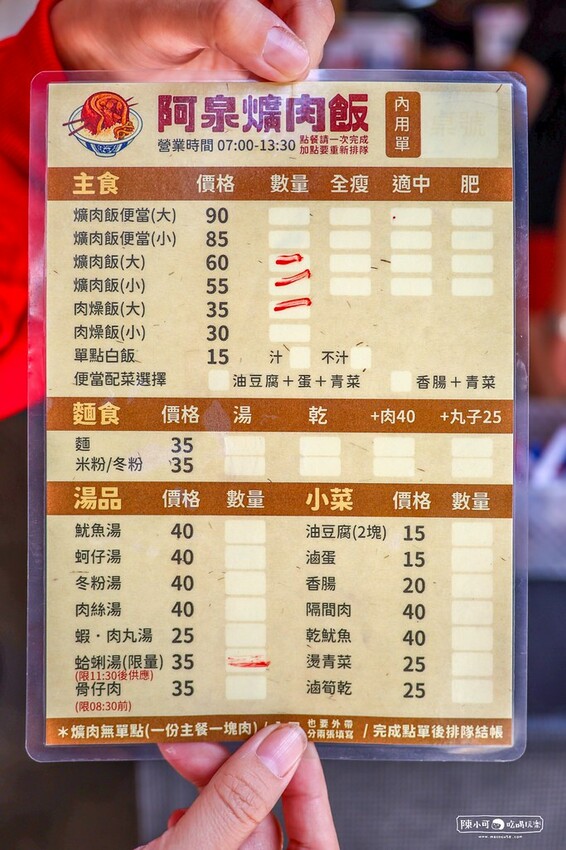 阿泉爌肉飯
內用單
營業時間 07:00-13:30 點餐請一次完成
加點要重新排隊
主食 價格 數量 全瘦 適中 肥
爌肉飯便當(大) 90
爌肉飯便當(小) 85
爌肉飯(大) 60 二
爌肉飯(小) 55 二
肉燥飯(大) 35 一
肉燥飯(小) 30
單點白飯 15 汁 不汁
便當配菜選擇 油豆腐＋蛋＋青菜 香腸＋青菜
麵食 價格 湯 乾 +肉40 +丸子25
麵 35
米粉/冬粉 35
湯品 價格 數量 小菜 價格 數量
魷魚湯 40 油豆腐(2塊) 15
蚵仔湯 40 滷蛋 15
冬粉湯 40 香腸 20
肉絲湯 40 隔間肉 40
蝦・肉丸湯 25 乾魷魚 40
蛤蜊湯(限量) 35 燙青菜 25
(限11:30後供應)
骨仔肉 35 滷筍乾 25
(限08:30前)
＊爌肉無單點(一份主餐一塊肉) / 也要外帶
分兩張填寫 / 完成點單後排隊結帳
陳小可吃喝玩樂